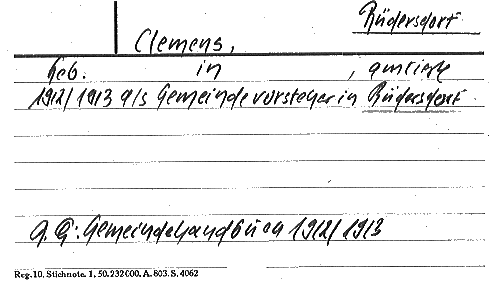 Rüdersdorf
Clemens,
Geb. in , amtierte
1912/1913 als Gemeindevorsteher in Rüdersdorf
Q. Gemeindehandbuch 1912/1913
Reg. 10. Stichnote. 1, 50. 232 000. A. 803. S. 4062